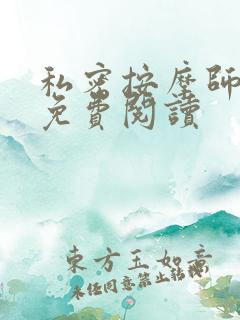 私密按摩師
免費閱讀
東方玉如意
未经同意禁止转载